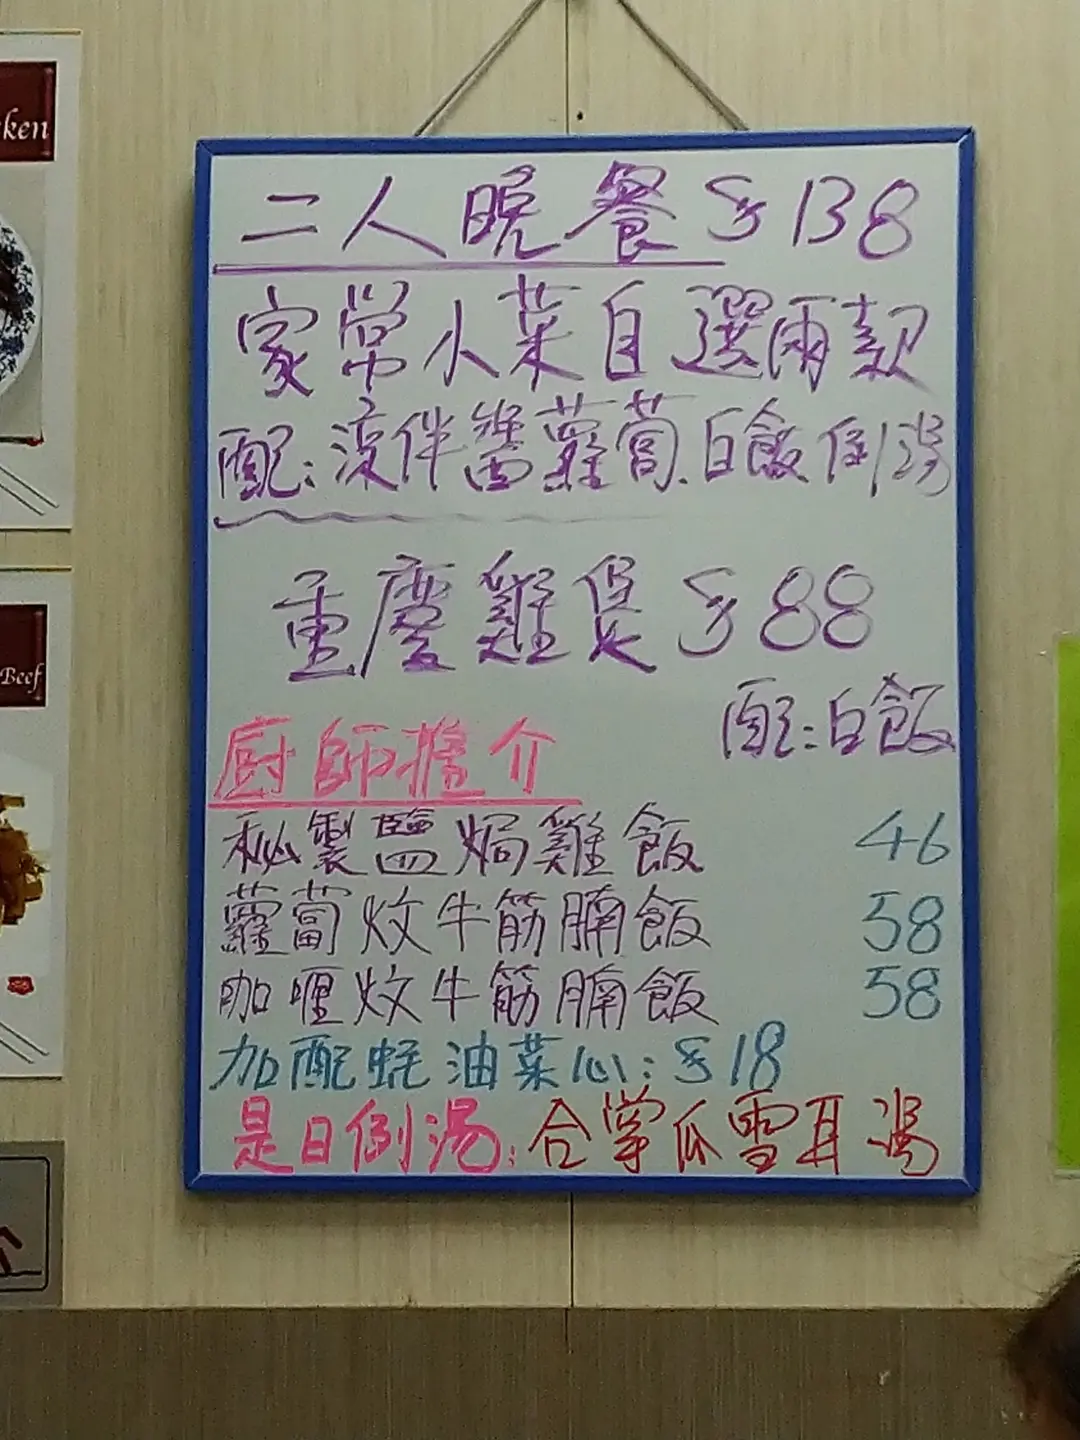 二人晚餐$138
家常小菜自選兩款
配:涼伴醬蘿蔔.白飯例湯
重慶雞煲$88
配:白飯
廚師推介
秘製鹽焗雞飯 46
蘿蔔炆牛筋腩飯 58
咖喱炆牛筋腩飯 58
加配蚝油菜心:$18
是日例湯:合掌瓜雪耳湯
ken
Beef